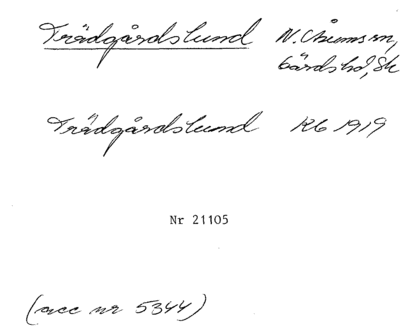 Trädgårdslund N. Åsums sn,
Gärds hd, Sk
Trädgårdslund Rb 1919
Nr 21105
(acc nr 5344)